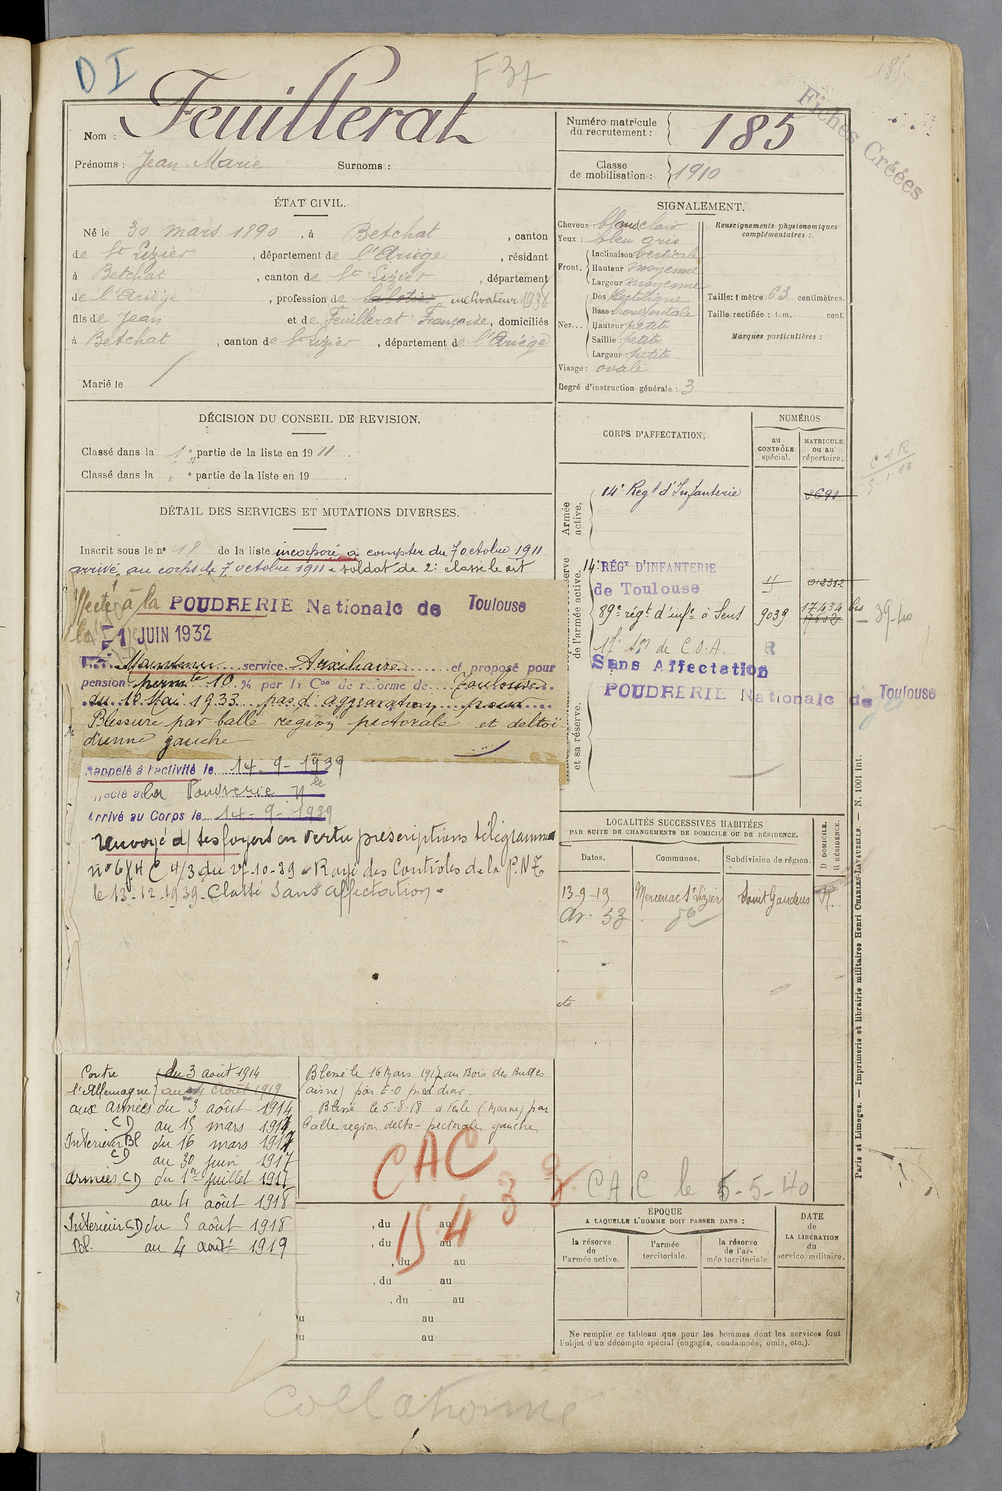 D I
F 37
185
Fiches Créées
Nom : Feuillerat
Prénoms : Jean Marie Surnoms :
Numéro matricule du recrutement : 185
Classe de mobilisation : 1910
ÉTAT CIVIL.
Né le 30 mars 1890, à Betchat, canton
de St Lizier, département de l'Ariège, résidant
à Betchat, canton de St Lizier, département
de l'Ariège, profession de sabotier cultivateur 1936
fils de Jean et de Feuillerat Françoise, domiciliés
à Betchat, canton de St Lizier, département de l'Ariège
Marié le
SIGNALEMENT.
Cheveux blond clair
Yeux : bleu gris
Front. Inclinaison verticale
Hauteur moyenne
Largeur moyenne
Nez... Dos Rectiligne
Base : horizontale
Hauteur petite
Saillie : petite
Largeur petite
Visage : ovale
Degré d'instruction générale : 3
Renseignements physionomiques complémentaires :
Taille : 1 mètre 63 centimètres.
Taille rectifiée : 1 m. cent.
Marques particulières :
DÉCISION DU CONSEIL DE REVISION.
Classé dans la 1e partie de la liste en 1911.
Classé dans la e partie de la liste en 19
DÉTAIL DES SERVICES ET MUTATIONS DIVERSES.
Inscrit sous le n° 18 de la liste incorporé à compter du 7 octobre 1911
arrivé au corps le 7 octobre 1911 soldat de 2e classe le dit
Affecté à la POUDRERIE Nationale de Toulouse
le 1 JUIN 1932
Maintenu service Auxiliaire et proposé pour
pension permte 10 % par la Con de réforme de Toulouse
du 10 Mai 1933 pas d'aggravation pour
Blessure par balle région pectorale et deltoï
dienne gauche
Rappelé à l'activité le 14-9-1939
Affecté à la Poudrerie Nle
Arrivé au Corps le 14-9-1939
renvoyé d/ ses foyers en vertu prescriptions télégramme
C 4/3 du 27-10-39 - Rayé des Contrôles de la P.N.T.
le 13-12-1939. Classé Sans affectation.
CORPS D'AFFECTATION.
NUMÉROS
au CONTRÔLE spécial.
MATRICULE ou au répertoire.
Armée active.
14e Regt d'Infanterie
Réserve de l'armée active.
14e RÉGt D'INFANTERIE
de Toulouse
89e régt d'infie à Sens 9039 17434 bis 39-40
17e Son de C.O.A.
Sans Affectation
POUDRERIE Nationale de Toulouse
et sa réserve.
LOCALITÉS SUCCESSIVES HABITÉES
PAR SUITE DE CHANGEMENTS DE DOMICILE OU DE RÉSIDENCE.
Dates. Communes. Subdivision de région. D DOMICILE. R RÉSIDENCE.
13-9-19 Mercenac St Lizier Saint Gaudens R.
Av. 33 de
Contre du 3 août 1914
l'Allemagne au 4 août 1919
aux armées du 3 août 1914
CD au 15 mars 1917
Intérieur Bl du 16 mars 1917
CD au 30 juin 1917
Armées CD du 1er juillet 1917
au 4 août 1918
Intérieur CD du 5 août 1918
Bl. au 4 août 1919
Blessé le 16 Mars 1917 au Bois des Buttes
(aisne) par E.O pied droit.
Blessé le 5-8-18 (Marne) par
balle région delto-pectorale gauche
CAC
1543
CAC le 5-5-40
, du au
, du au
, du au
, du au
, du au
du au
du au
ÉPOQUE
A LAQUELLE L'HOMME DOIT PASSER DANS :
la réserve de l'armée active.
l'armée territoriale.
la réserve de l'armée territoriale
DATE DE LA LIBÉRATION du service militaire.
Ne remplir ce tableau que pour les hommes dont les services font
l'objet d'un décompte spécial (engagés, condamnés, omis, etc.).
Paris et Limoges. — Imprimerie et librairie militaires Henri CHARLES-LAVAUZELLE. — N. 1001 Int.
Collationné